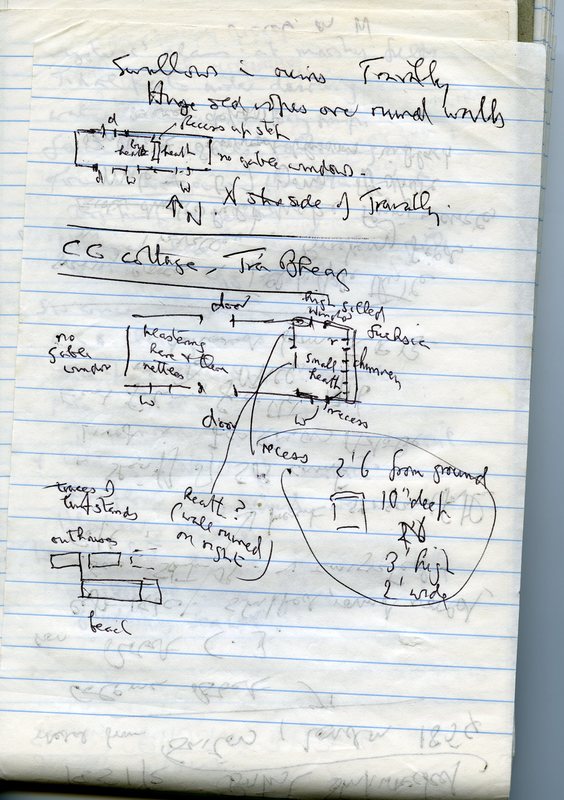 Swallows in ruins Travally
Huge old are ruined walls
Recess up step
d
hearth
hearth
no gable windows.
d
w
w
N
N side of Travally.
CG cottage, Trá Bheag
door
high silled
window
fuchsia
no
gable
window
plastering
here & then
nettles
r
small
hearth
chimney
w
door
w
recess
recess
2'6 from ground
10" deep
3' high
2' wide
hearth?
(wall ruined
on right
traces of
turf stands
outhouses